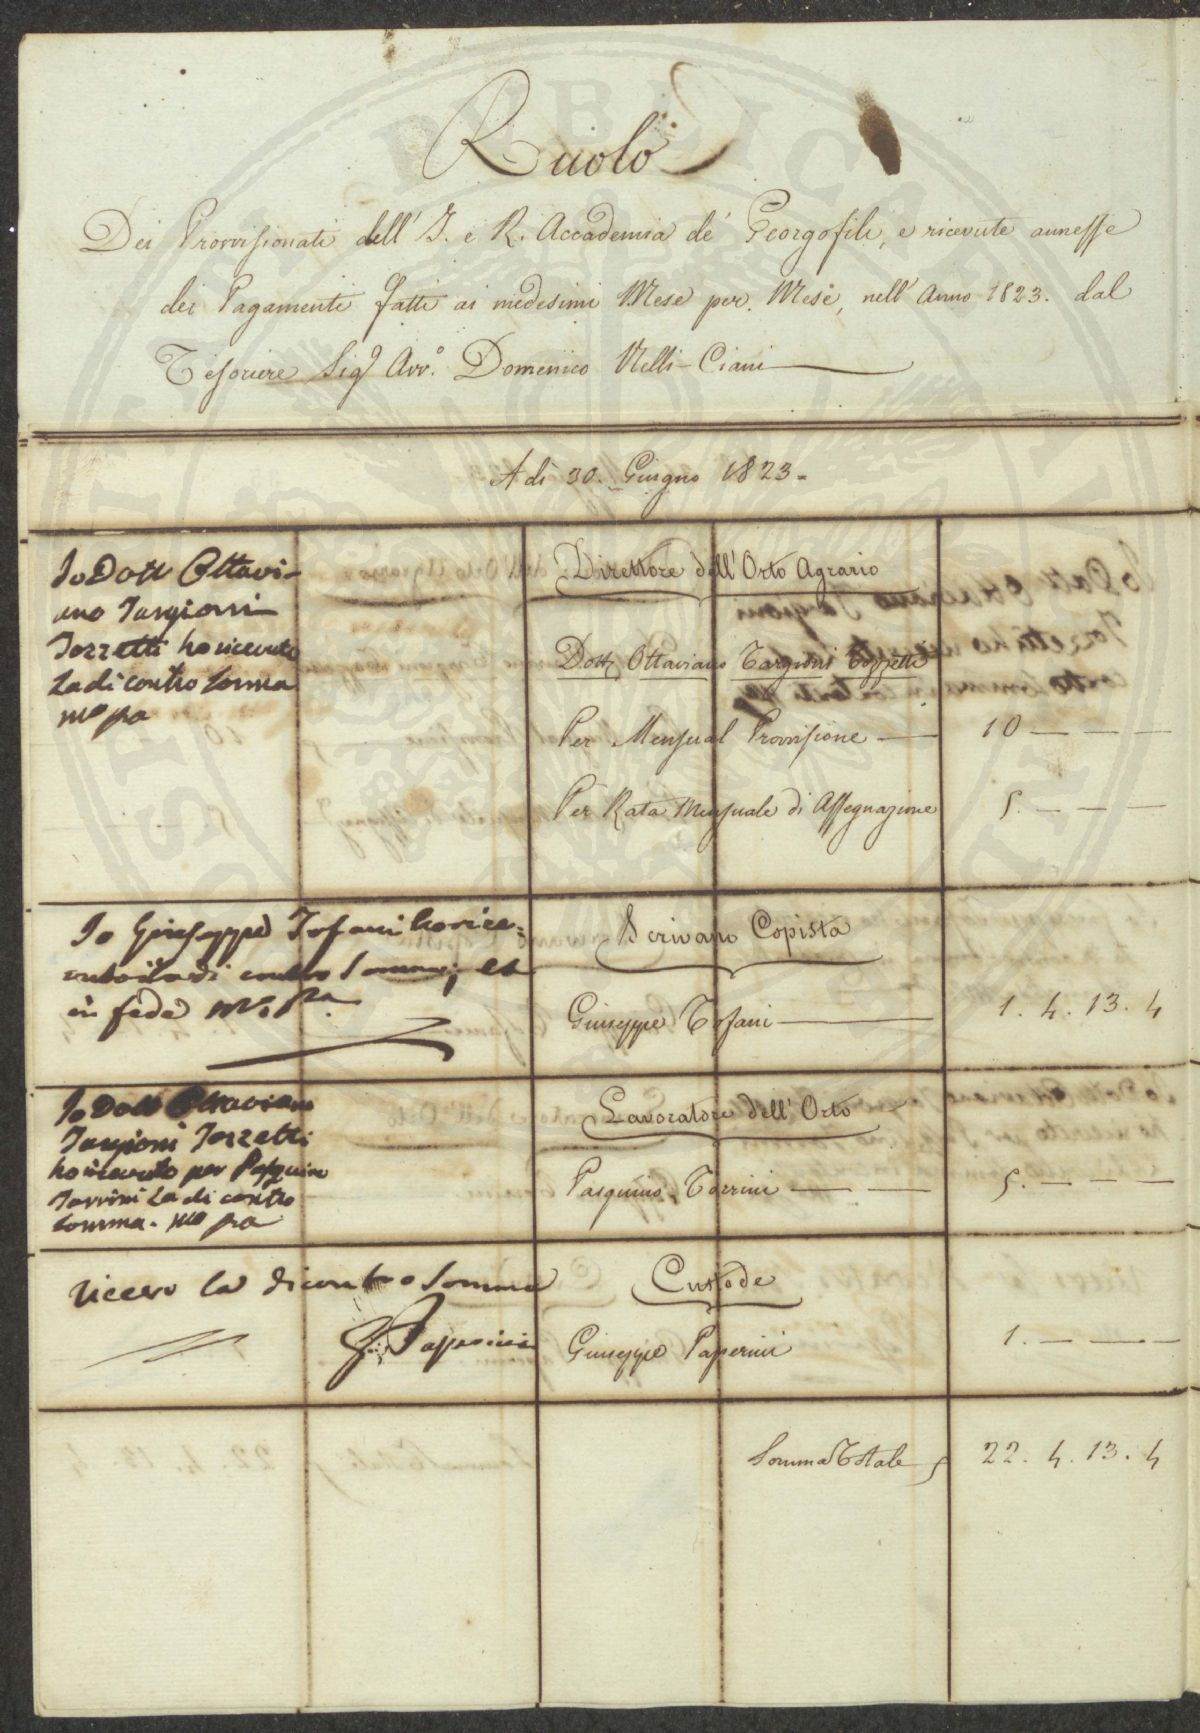 Ruolo
Dei Provvisionati dell' I. e R. Accademia de' Georgofili, e ricevute annesse
dei Pagamenti fatti ai medesimi Mese per Mese, nell' Anno 1823. dal
Tesoriere Sig.r Avv.o Domenico Nelli-Ciani
A dì 30. Giugno 1823.
Io Dott Ottavi-
ano Targioni
Tozzetti ho ricevuto
La di contro Somma
mo pa
Direttore dell' Orto Agrario
Dott. Ottaviano Targioni Tozzetti
Per Mensual Provvisione — 10 — — —
Per Rata Mensuale di Assegnazione 5. — — —
Io Giuseppe Tofani ho rice=
vuto la di contro Somma, ed
in fede mo. pa.
Scrivano Copista
Giuseppe Tofani — 1. 4. 13. 4
Io Dott Ottaviano
Targioni Tozzetti
ho ricevuto per Pasquino
Torrini La di contro
Somma. mo pa
Lavoratore dell' Orto
Pasquino Torrini — — 5. — — —
Ricevo la di contro Somma
G. Paperini
Custode
Giuseppe Paperini 1. — — —
Somma Totale 22. 4. 13. 4